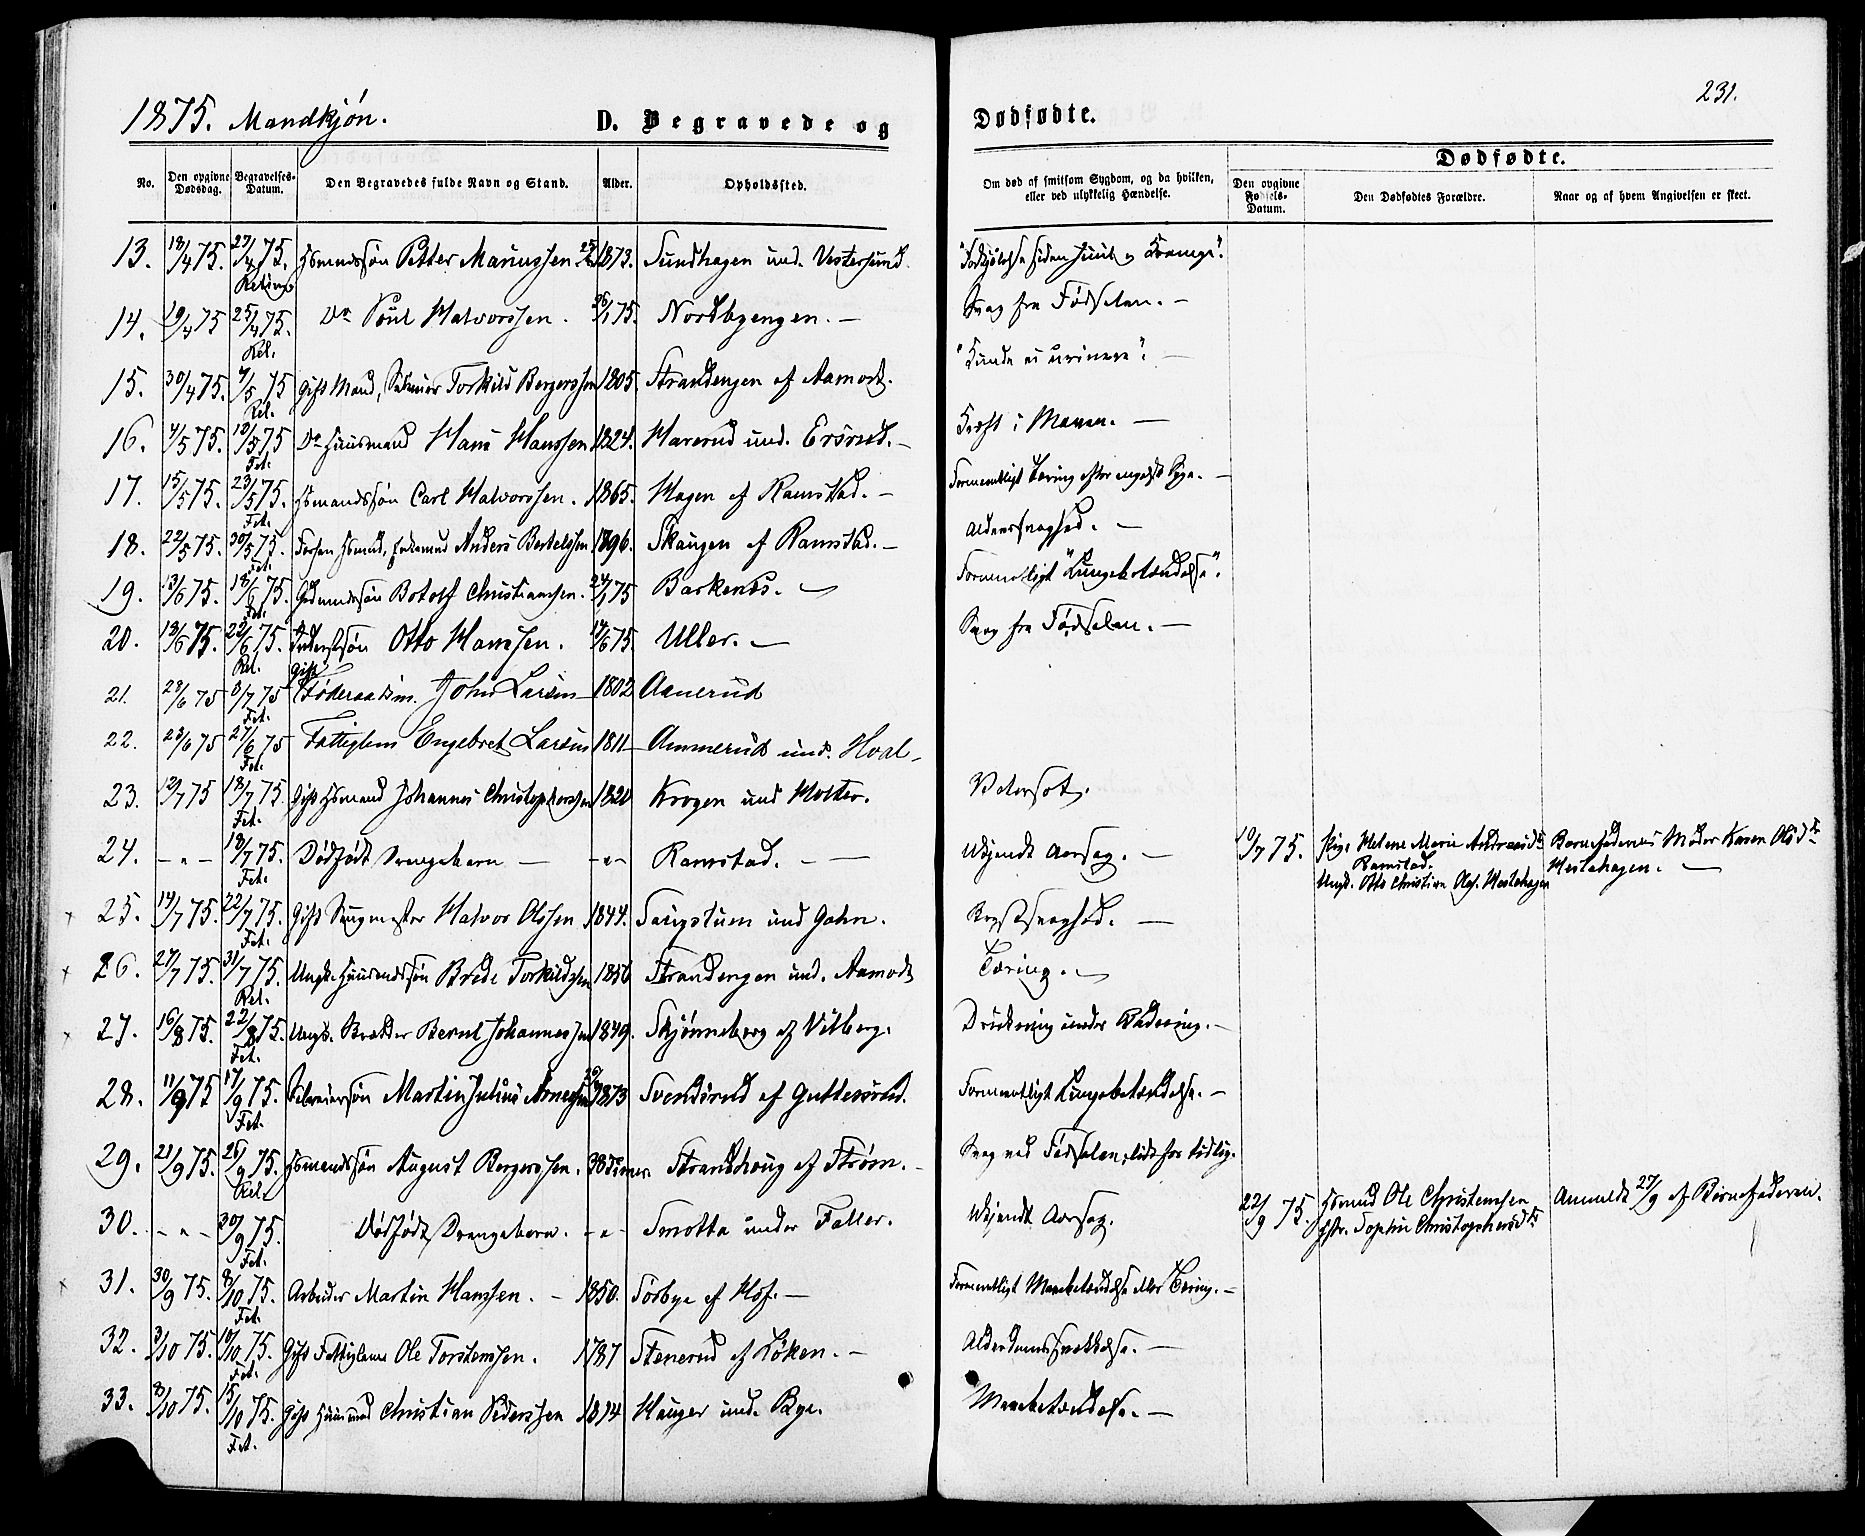 231.
1875. Mandkjøn. D. Begravede og Dødfødte.
No. Den opgivne Dødsdag. Begravelses-Datum. Den Begravedes fulde Navn og Stand. Alder. Opholdssted. Om død af smitsom Sygdom, og da hvilken, eller ved ulykkelig Hændelse. Dødfødte.
Den opgivne Fødsels-Datum. Den Dødfødtes Forældre. Naar og af hvem Angivelsen er skeet.
13. 18/4 75. 27/4 75. Hsmandssøn Petter Mariussen 1873. Sundhagen und. Vestersund.
14. 19/4 75 25/4 75. Rel. Do Poul Halvorssen. 26/1 75. Nordbyengen. — Svag fra Fødselen. —
15. 30/4 75. 7/5 75 Rel. Gift Mand, Selveier Torkild Bergerssen 1805. Strandengen af Aamodt. "Kunde ei urinere". —
16. 4/5 75. 13/5 75 Fet. Do Huusmand Hans Hanssen 1824. Harerud und. Ersrud. — Kræft i Maven. —
17. 15/5 75. 23/5 75. Fet. Hsmandssøn Carl Halvorssen. 1865. Hagen af Ramstad. — Formentligt Tæring efter engelsk Syge. —
18. 22/5 75. 30/5 75. Fet. Anders Bertelssen 1796. Skaugen af Ramstad. — Alderssvaghed. —
19. 13/6 75. 18/6 75. Fet. Gmandssøn Botolf Christianssen. 24/1 75 Barkenæs. — Formentligt "Lungebetændelse".
20. 13/6 75. 22/6 75. Rel. Inderstsøn Otto Hanssen. 12/6 75. Uller. — Svag fra Fødselen. —
21. 28/6 75 3/7 75 Fet. Gift Føderaadsm. John Larsen 1802 Aanerud
22. 23/6 75 27/6 75 Fet. Fattiglem Engebret Larsen 1811 Ammerud und. Hval.
23. 12/7 75 18/7 75. Fet. Gift Hsmand Johannes Christopherssen 1820 Krogen und Holter. Vatersot.
24. — " — 18/7 75. Fet. Dødfødt Drengebarn — — " — Ramstad. — — Ukjendt Aarsag. — 10/7 75. Pige Helene Marie Andreasdtr Ramstad. Ungk. Otto Christian Olss. Hestehagen Barnefaderens Moder Karen Olsdtr Hestehagen. —
25. 14/7 75. 22/7 75. Fet. Gift Saugmester Halvor Olssen 1844. Saugstuen und Gahn. Brystsvaghed. —
26. 27/7 75. 31/7 75. Rel. Ungk. Huusmandssøn Brede Torkildssen 1856 Strandengen und. Aamodt Tæring. —
27. 16/8 75. 22/8 75. Fet. Ungk. Bernt Johannessen 1849. Skjønneberg af Vilberg. Drukning under Badning. —
28. 11/9 75 17/9 75. Fet. Selveiersøn Martin Julius Arnessen 1873 Svendsrud af Guttersrud. Formentligt Lungebetændelse. —
29. 21/9 75. 26/9 75. Rel. Hsmandssøn August Bergerssen. 38 Timer. Strandhoug af Strøm. — Svag ved Fødselen, lidt for tidlig.
30. — " — 30/9 75. Fet. Dødfødt Drengebarn. — " — Smotta under Faller. Ukjendt Aarsag. 22/9 75. Hsmand Ole Christenssen Hstr. Sophie Christophersdtr Anmeldt 27/9 af Barnefaderen.
31. 30/9 75. 8/10 75. Fet. Arbeider Martin Hanssen. — 1850. Sørbye af Hof. — Formentligt Mavebetændelse eller Tæring. —
32. 3/10 75. 10/10 75. Fet. Gift Fattiglem Ole Torstenssen. 1787 Stenerud af Løken. — Alderdomssvækkelse. —
33. 8/10 75. 15/10 75. Fet. Gift Huusmand Christian Pederssen 1814 Hauger und. Bye. Mavebetændelse. —